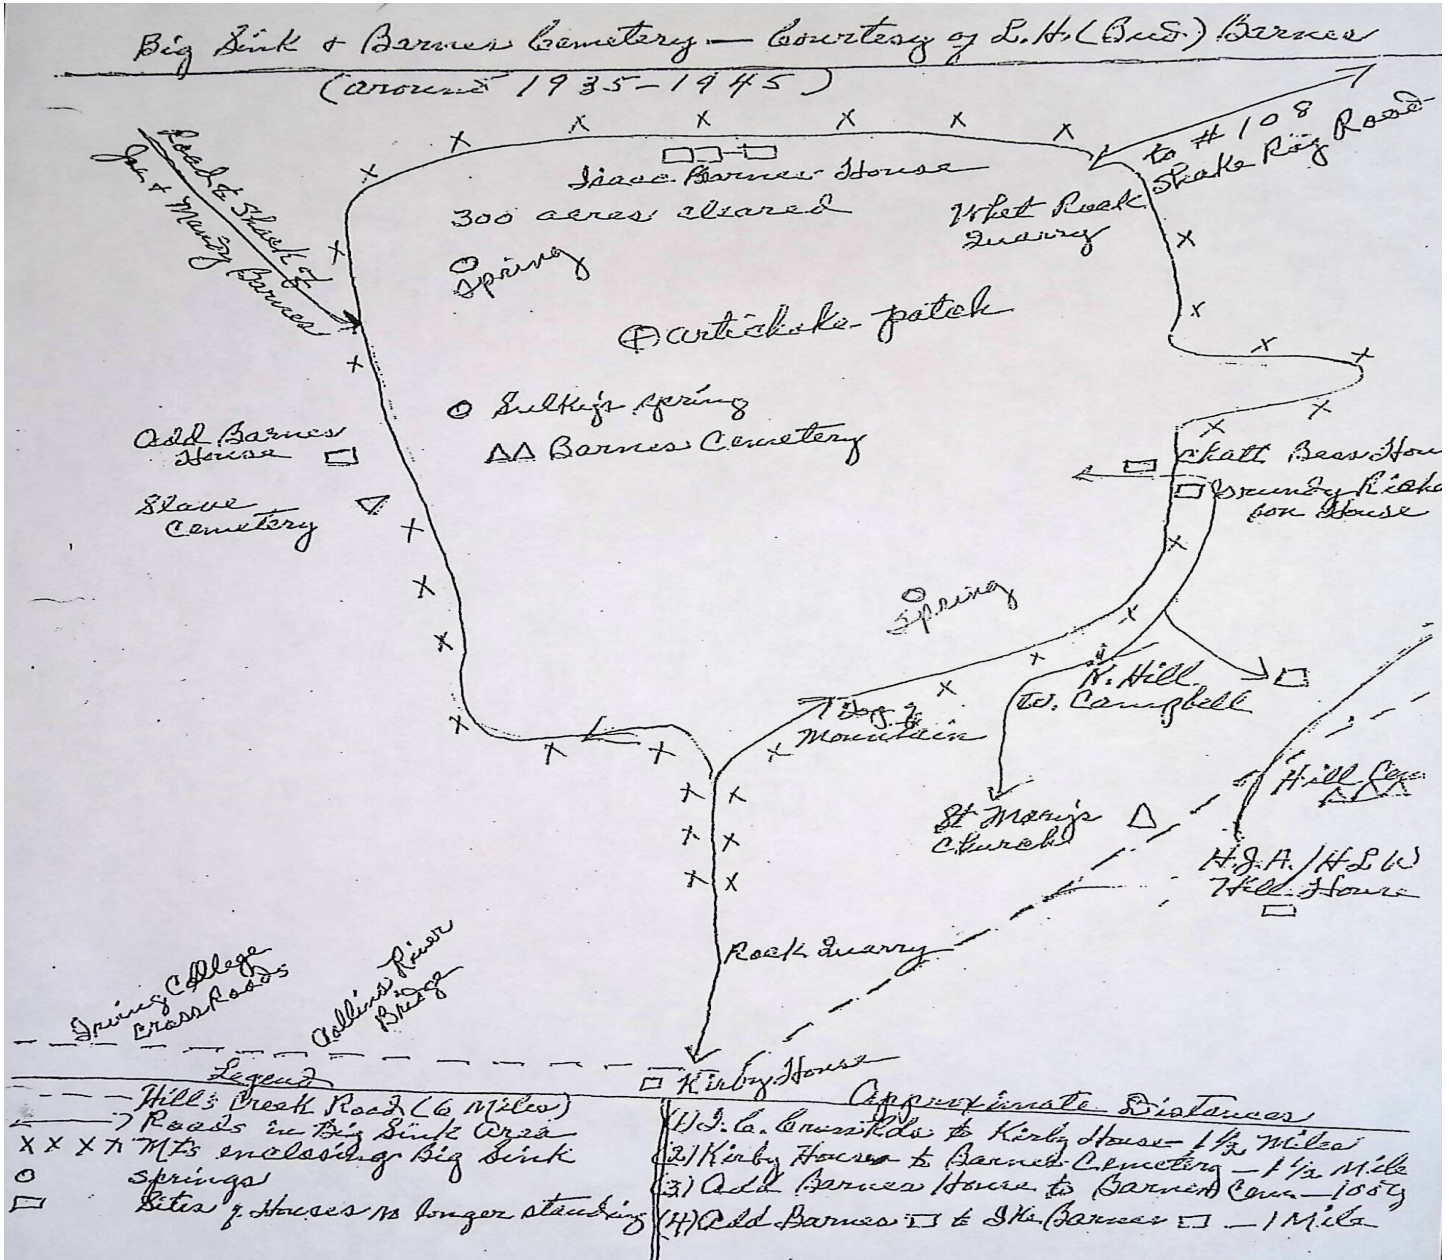 Big Sink & Barnes Cemetery — Courtesy of L.H. (Bud.) Barnes
(around 1935-1945)
Road to Shack of
Jim & Mandy Barnes
to # 108
Shake Rag Road
Isaac Barnes House
300 acres cleared
Whet Rock
Quarry
Spring
artichoke patch
Sulky's spring
Barnes Cemetery
Add Barnes
House
Slave
Cemetery
Chatt Bess Hou
Grundy Rich
son House
Spring
N. Hill
W. Campbell
Mountain
St Mary's
Church
Hill Cem
H.J.A./H L W
Hill House
Rock Quarry
Irving College
Cross Roads
Collins River
Bridge
Kirby House
Legend
Hill's Creek Road (6 Miles)
Roads in Big Sink Area
X X X X Mts enclosing Big Sink
Springs
Sites of Houses no longer standing
Approximate Distances
(1) I.C. to Kirby House — 1 1/2 Miles
(2) Kirby House to Barnes Cemetery — 1 1/2 Mile
(3) Add Barnes House to Barnes Cem —
(4) Add Barnes to Ike Barnes — 1 Mile